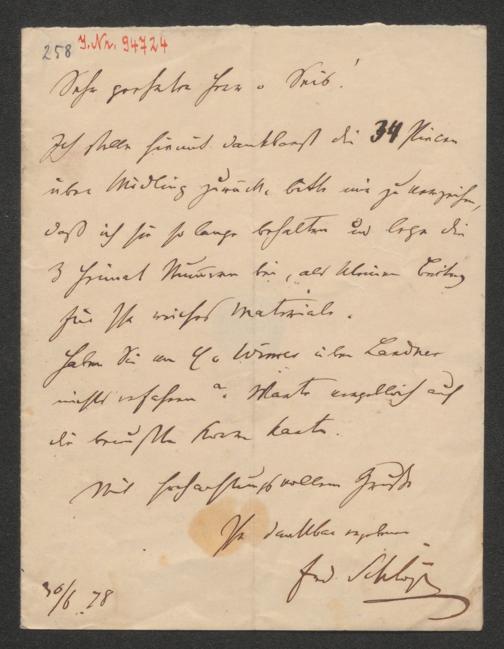 258 J. Nr. 94724
Sehr geehrter Herr v Seib!
Ich stelle hiemit dankbarst die 34 Piecen
über Mödling zurück, bitte mir zu verzeihen,
daß ich sie so lange behalten und lege die
3 Heimat Nummern bei, als kleinen Beitrag
für Ihr reiches Material.
Haben Sie von über Landner
nichts erfahren? Warte vergeblich auf
die bewußte Karte.
Mit hochachtungsvollem Gruße
Ihr dankbar ergebener
Frd. Schlögl
30/6 78